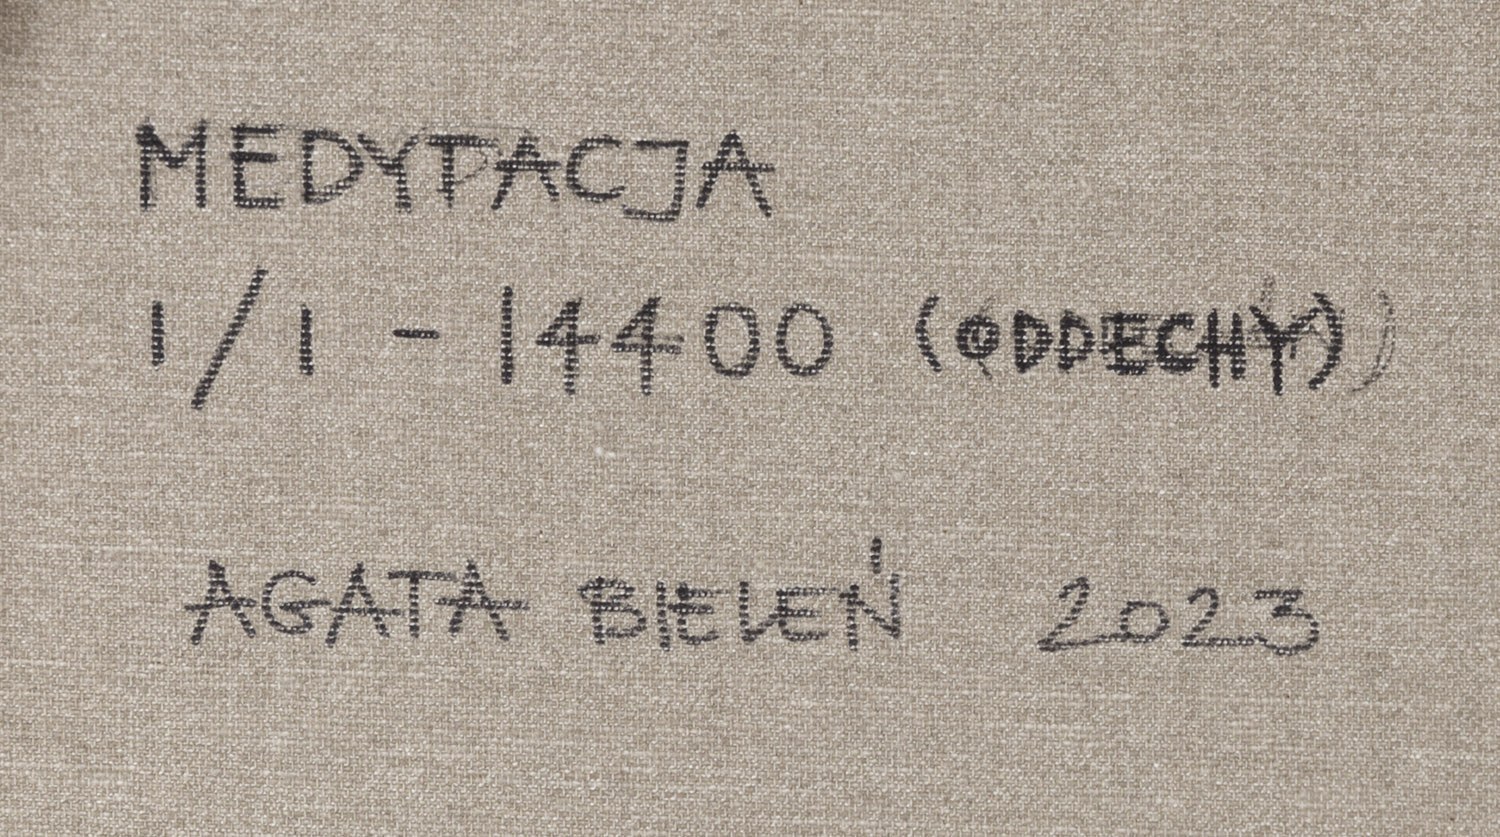 MEDYTACJA
1/1 - 14400 (ODDECHY)
AGATA BIELEŃ 2023